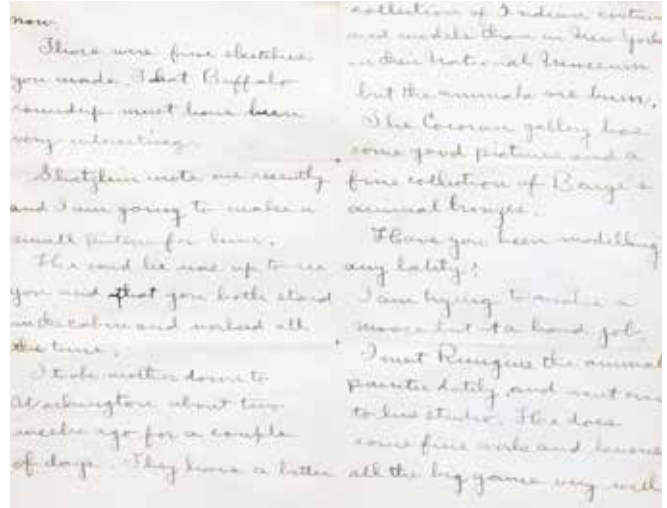 now.
Those were fine sketches
you made. That Buffalo
roundup must have been
very interesting.
Shatzlein wrote me recently
and I am going to make a
small picture for him.
He said he was up to see
you and that you both staid
in the cabin and worked all
the time.
I took mother down to
Washington about two
weeks ago for a couple
of days. They have a better
collection of Indian costumes
and models than in New York
in their National Museum
but the animals are bum.
The Cocoran gallery has
some good pictures and a
fine collection of Barye's
animal bronzes.
Have you been modelling
any lately?
I am trying to make a
moose but it a hard job.
I met Rungius the animal
painter lately, and went over
to his studio. He does
some fine work and knows
all the big game very well